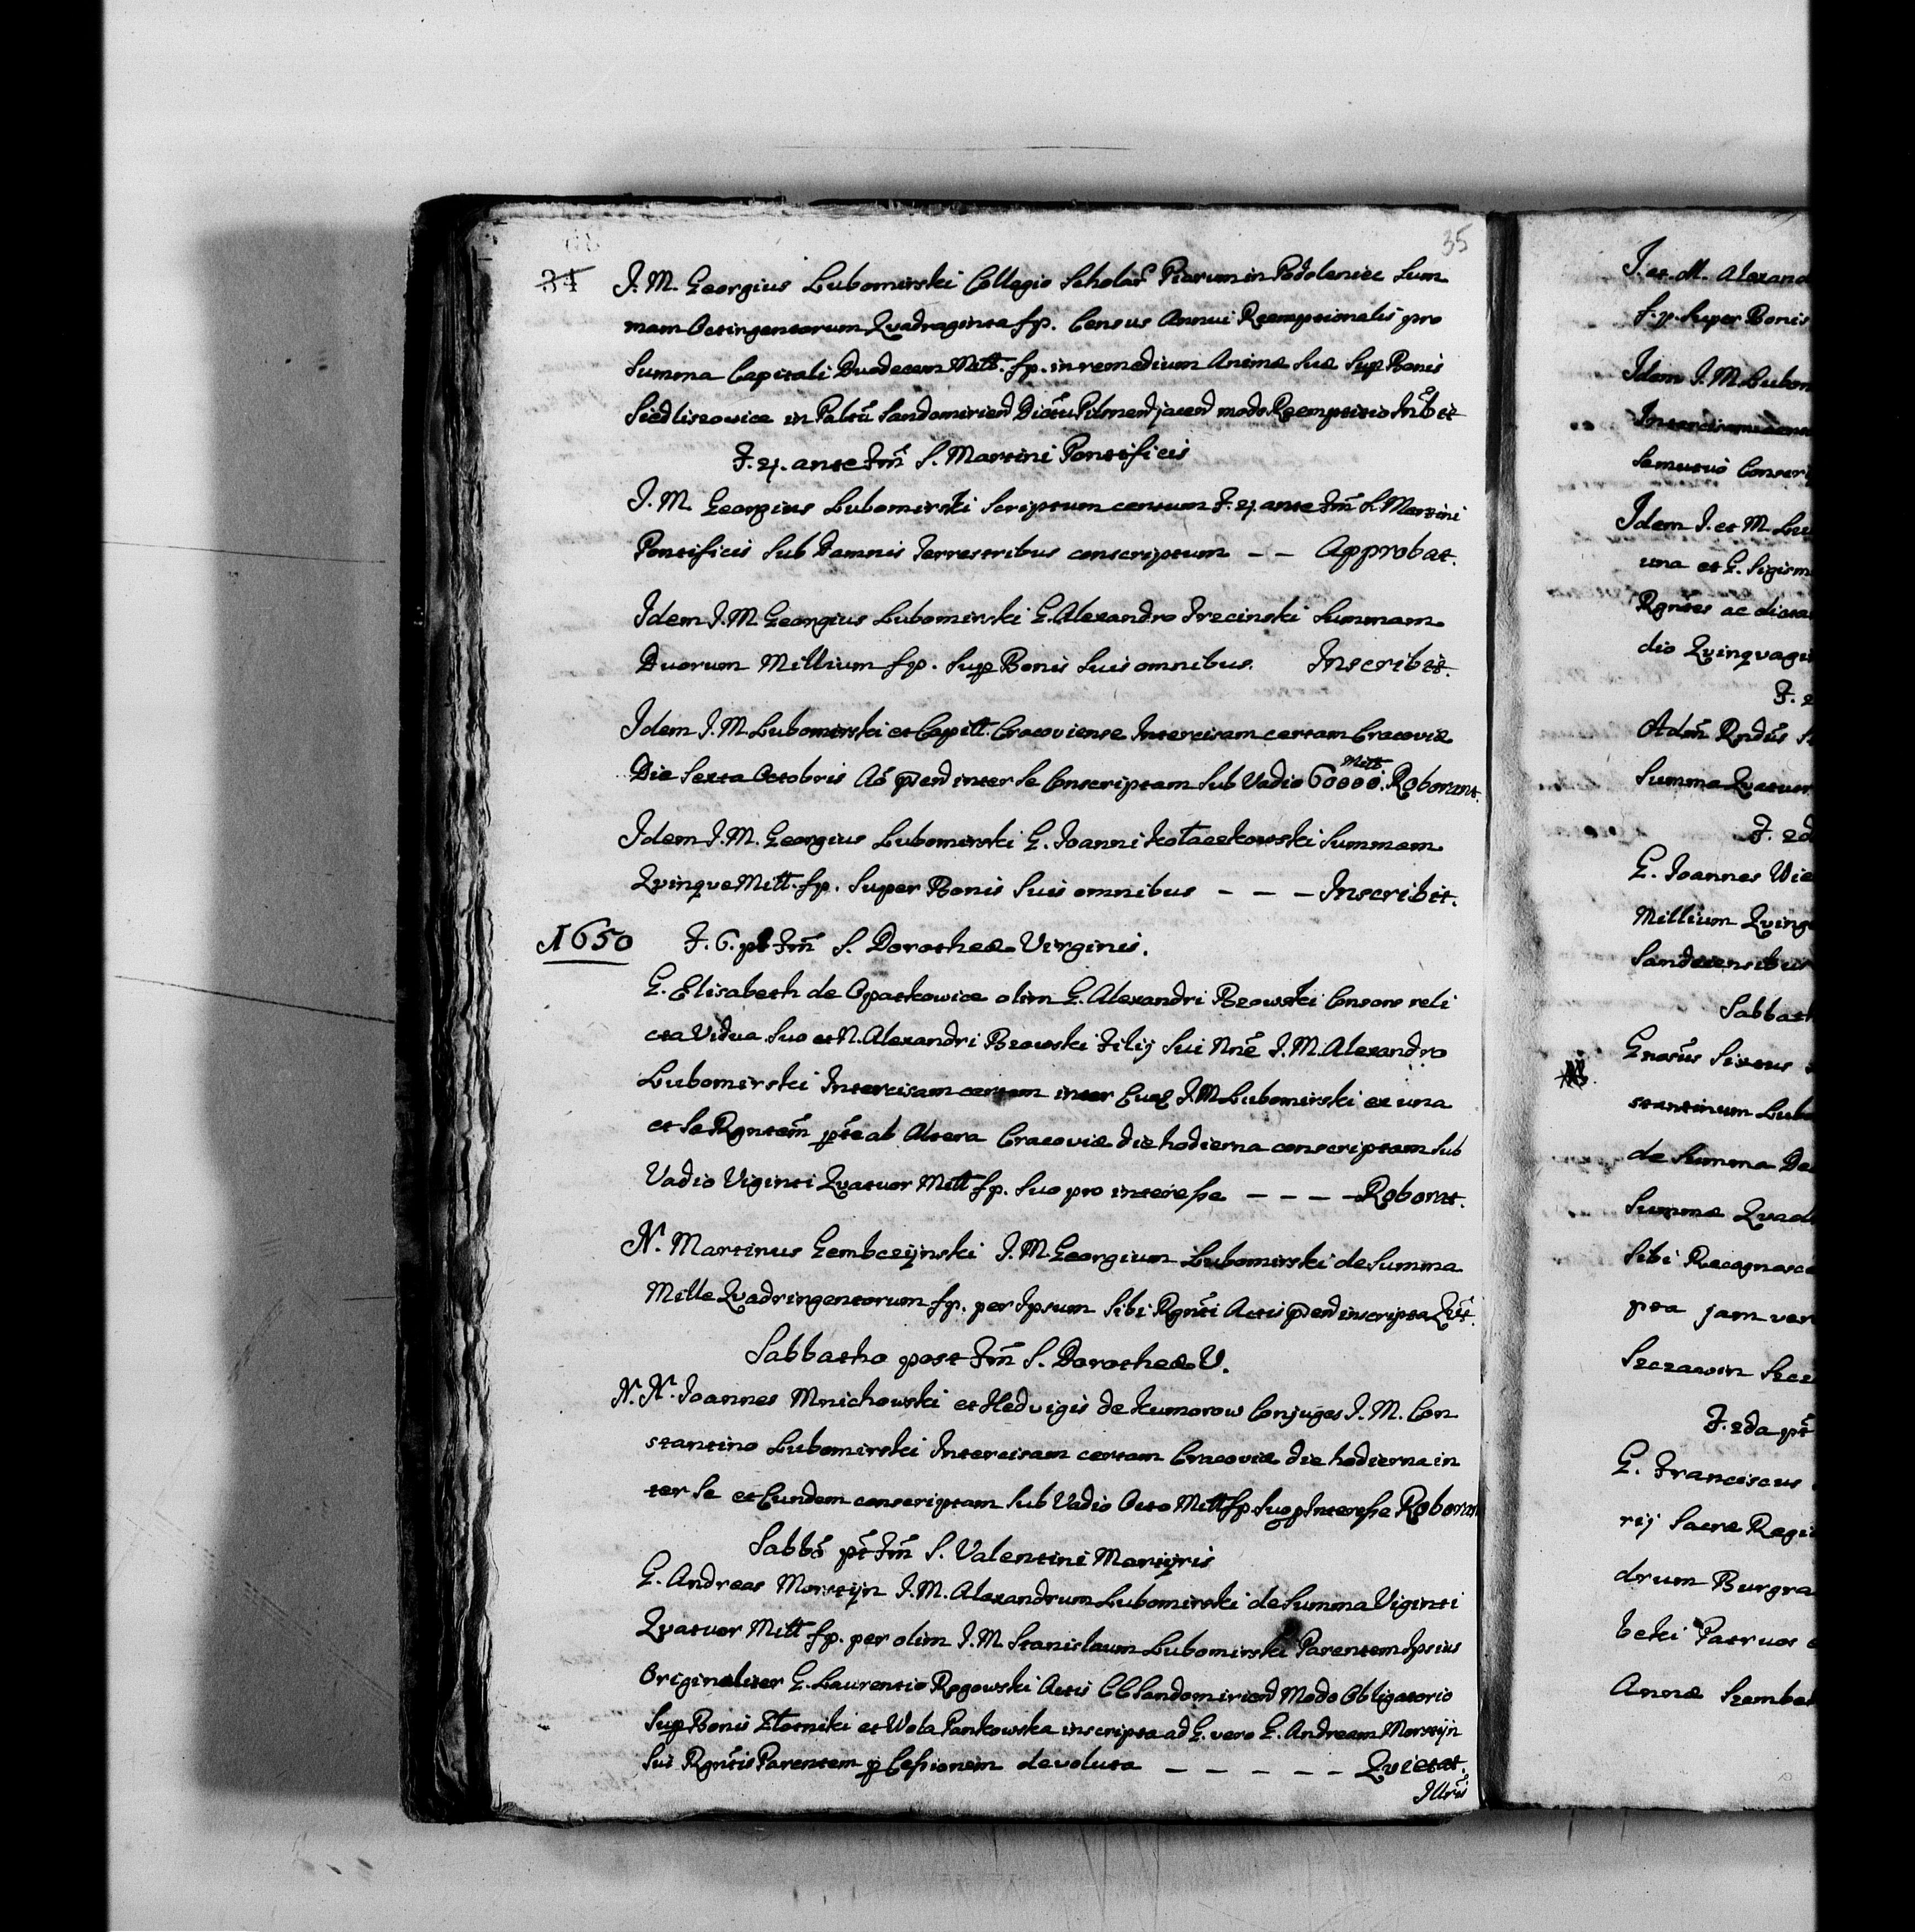 35
34 J. M. Georgius Lubomirski Collegio Scholar Piarum in Podoleniec Sum
mam Octingentorum Quadraginta fp. Census Annui Reemptionalis pro
Summa Capitali Duodecem Mill. fp. in remedium Animæ Suæ Sup Bonis
Siedliszowice in Paltũ Sandomirien Dictũ Pilznen jacen modo Reemptitio Inbit
F. 4. ante Fm̃ S. Martini Pontificis
J. M. Georgius Lubomirski Scriptum certum F. 4. ante Fm̃ S. Martini
Pontificis Sub Damnis Terrestribus conscriptum - - Approbat.
Idem J. M. Georgius Lubomirski G. Alexandro Trzcinski Summam
Duorum Millium fp. Sup Bonis Suis omnibus. Inscribit.
Idem J. M. Lubomirski et Capitl. Cracoviense Intercisam certam Cracoviæ
Die Sexta Octobris Aõ p̃en inter Se Conscriptam Sub Vadio 60000 Mill. Roborant.
Idem J. M. Georgius Lubomirski G. Joanni Kołaczkowski Summam
Quinque Mill. fp. Super Bonis Suis omnibus - - - Inscribit.
1650 F. 6. pt Fm̃ S. Dorotheæ Virginis.
G. Elisabeth de Opatkowice olim G. Alexandri Bzowski Consors reli
cta Vidua Suo et N. Alexandri Bzowski Filij Sui Nñe J. M. Alexandro
Lubomirski Intercisam certam inter Eund J. M. Lubomirski ex una
et Se Rgntem̃ p̃te ab Altera Cracoviæ die hodierna conscriptam Sub
Vadio Viginti Quatuor Mill fp. Suo pro interesse - - - - Roborat.
N. Martinus Gembczynski J. M. Georgium Lubomirski de Summa
Mille Quadringentorum fp. per Ipsum Sibi Rgnt̃i Actis p̃en inscripta Qũt.
Sabbatho post Fm̃ S. Dorotheæ V.
N. N. Joannes Mnichowski et Hedvigis de Kumorow Conjuges J. M. Con
stantino Lubomirski Intercisam certam Cracoviæ die hodierna in
ter Se et Eundem conscriptam Sub Vadio Octo Mill fp. Suo p Interesse Roborant
Sabbõ pt̃ Fm̃ S. Valentini Martyris
G. Andreas Morstyn J. M. Alexandrum Lubomirski de Summa Viginti
Quatuor Mill fp. per olim J. M. Stanislaum Lubomirski Parentem Ipsius
Originaliter G. Laurentio Rogowski Actis CC Sandomirien Modo Obligatorio
Sup Bonis Złotniki et Wola Pankowska inscripta ad G. vero G. Andream Morstyn
Sui Rgnt̃is Parentem p Cessionem devoluta - - - - - Quietat.
Illr̃i
J. et M. Alexand
f. p. Super Bonis
Idem J. M. Lubom
Intercisam
Semutuo Conscri
Idem J. et M. Lu
una et G. Sigism
Rgntes ac dicta
dio Quinquagi
F. 2
Adm̃ Rndũs
Summa Quatuor
F. 2d
G. Joannes Wie
Millium Quing
Sandecensibus
Sabbath
Gnosũs Sixtus
stantinum Lub
de Summa De
Summæ Quad
Sibi Recognosc
pta jam ver
Szczawin Szcz
F. 2da pt̃
G. Franciscus
rij Sacræ Regi
drum Burgra
becki Patruos
Annæ Szembe